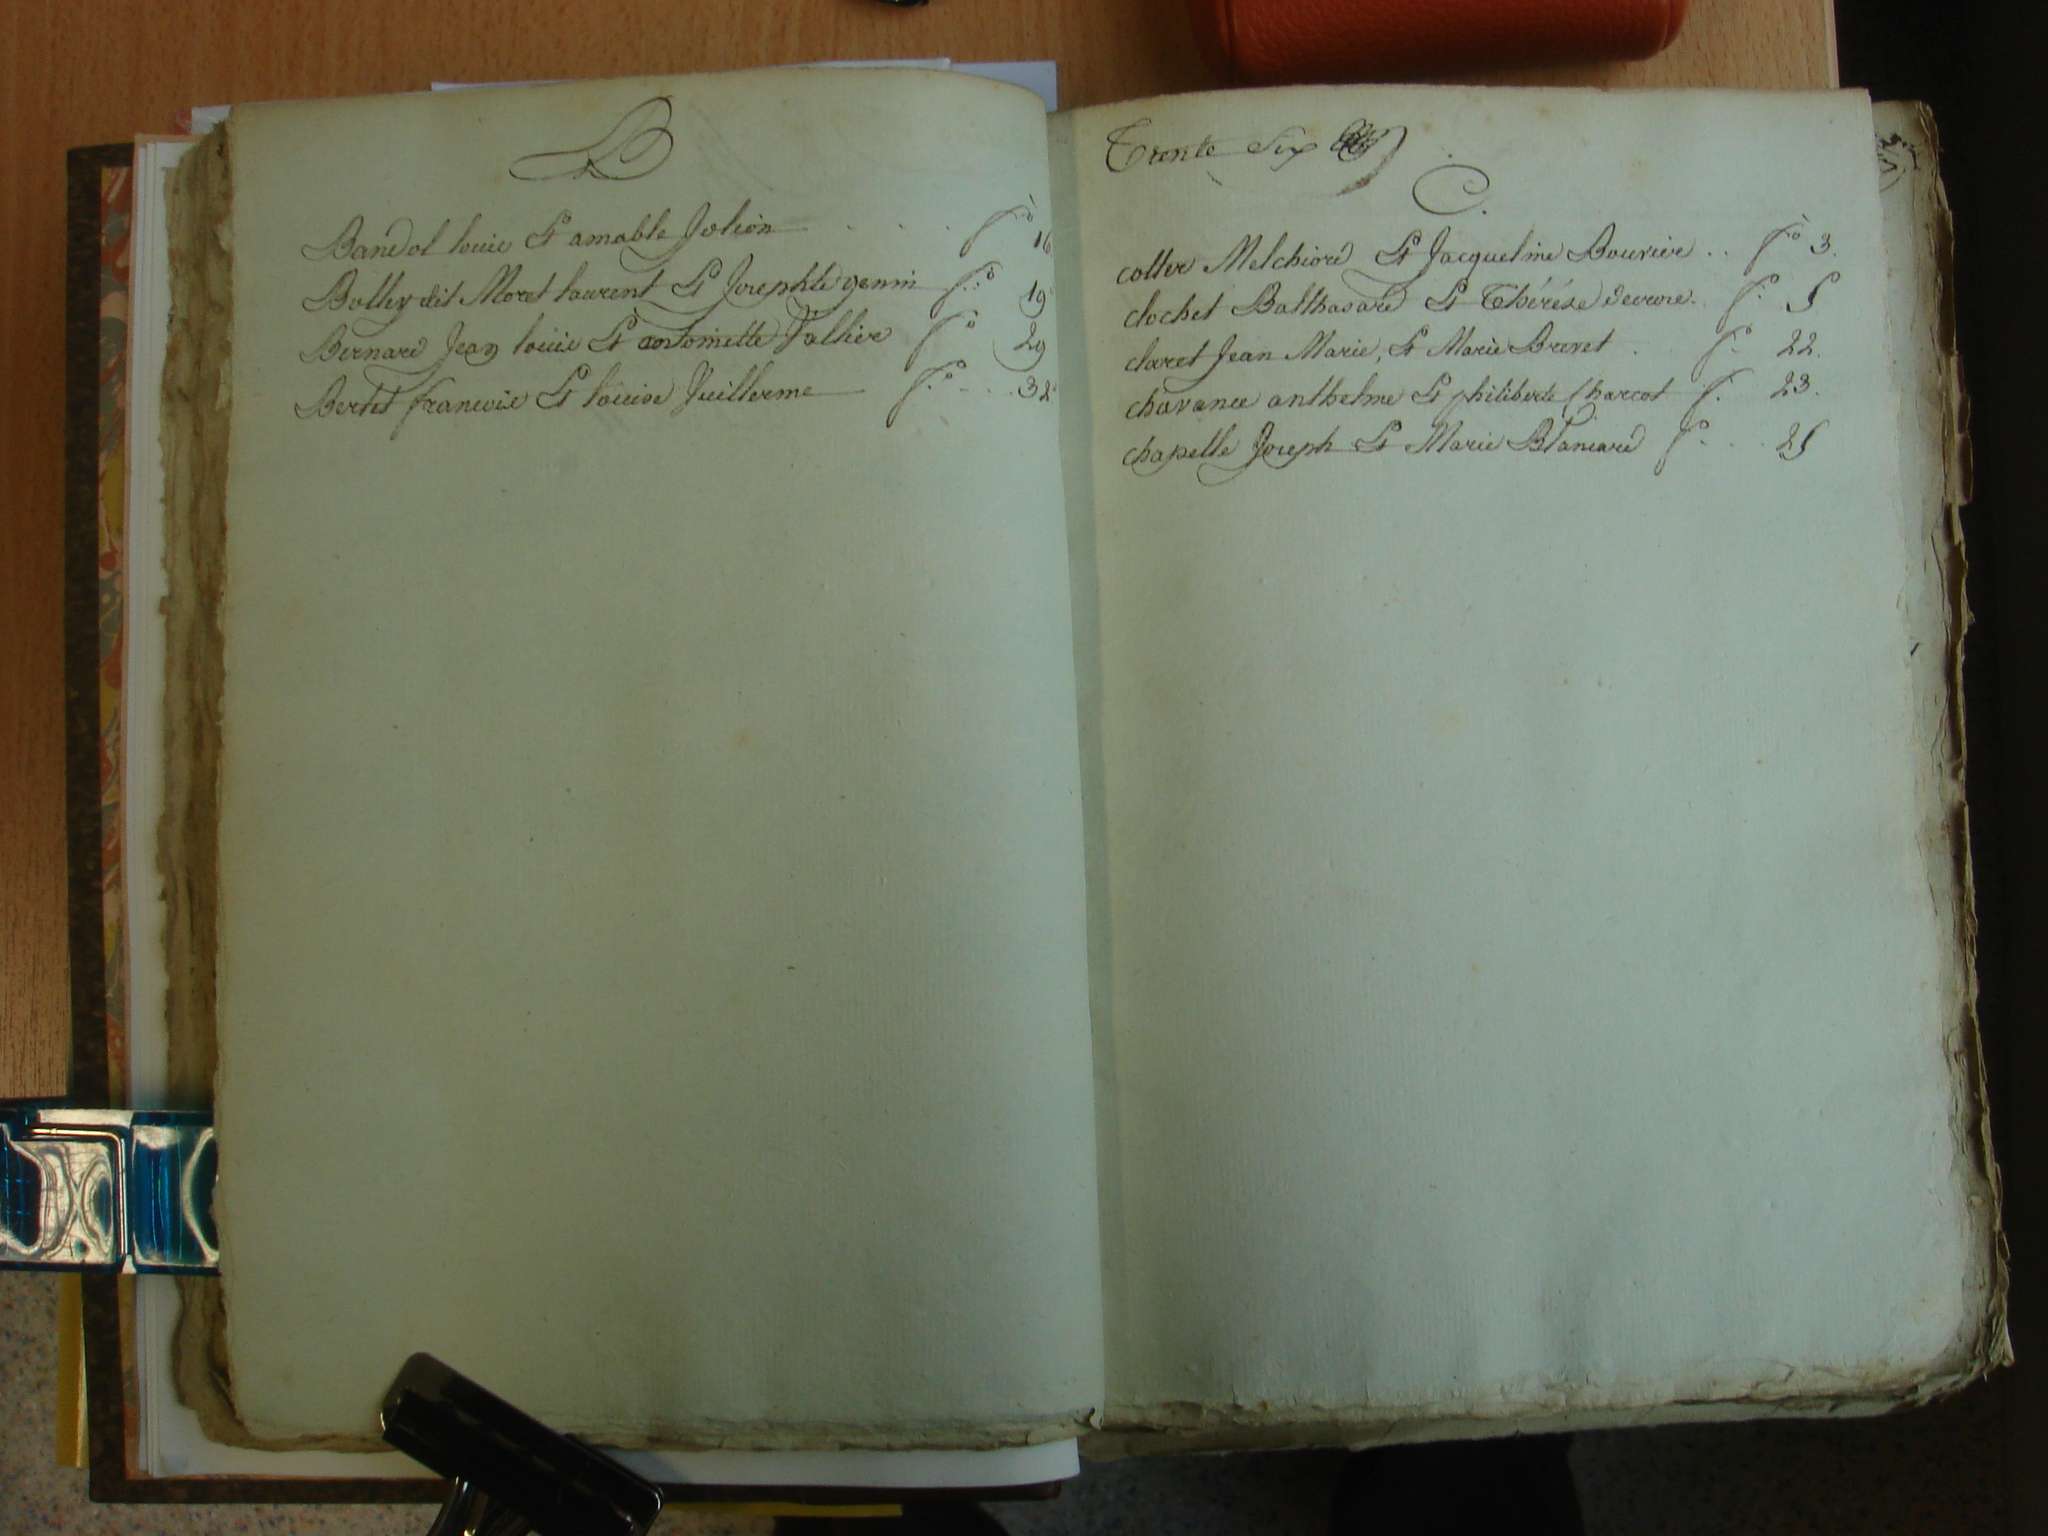 B
Bandol louis Et amable Jolion . . . fo 16
Bolley dit Moret laurent Et Josephte genin fo 19
Bernard Jean louis Et antoinette Vallier fo 29
Bertet francois Et louise Vuillerme fo 32
Trente Six
C.
collex Melchiord Et Jacqueline Bouvier . . fo 3.
clochet Balthasard Et Thérése f. 5
claret Jean Marie, Et Marie Brevet . f. 22.
chavance anthelme Et philiberte Charcot f. 23.
chapelle Joseph Et Marie Blancard f. . . 25